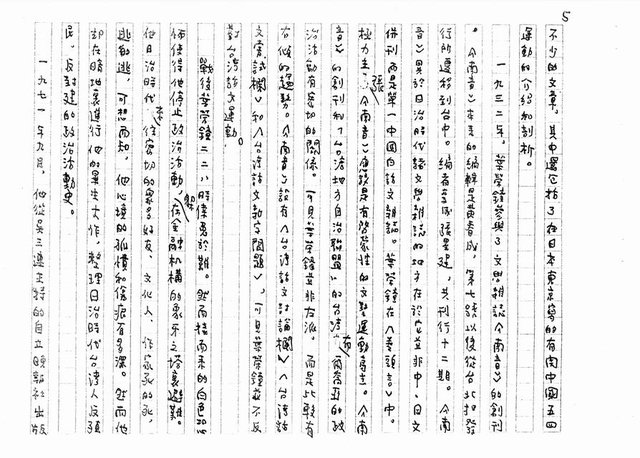 5
不少的文章，其中還包括了在日本東京寫的有關中國五四
運動的介紹和剖析。
一九三二年，葉榮鐘參與了文學雜誌《南音》的創刊
。《南音》本來的編輯是黃春成，第七號以後從台北扣發
行所遷移到台中。編者 張星建，共刊行十二期。《南
音》異於日治時代諸文學雜誌的地方在於它並非中、日文
併刊而是第一中國白話文雜誌。葉榮鐘在《卷頭言》中，
極力主張《南音》應該是有啓蒙性的文藝運動 。《南
音》的創刊和「台灣地方自治聯盟」的台灣 的政
治活動有密切的關係。可見葉榮鐘並非右派，而是比較有
右傾的趨勢。《南音》設有《台灣話文討論欄》、《台灣話
文嘗試欄》和《台灣話文新字問題》，可見葉榮鐘並不反
對台灣話文運動。
戰後葉榮鐘二二八時僥倖 於難。然而接而來的白色恐
怖使得他停止政治活動，在金融機構的象牙之塔裏避難。
他日治時代來往密切的眾多好友、文化人、作家死的死，
逃的逃，可想而知，他心境的孤憤和傷痕有多深。然而他
卻在暗地裏進行他的畢生大作，整理日治時代台灣人反殖
民、反封建的政治活動史。
一九七一年九月，他從吳三連主持的自立晚報社出版